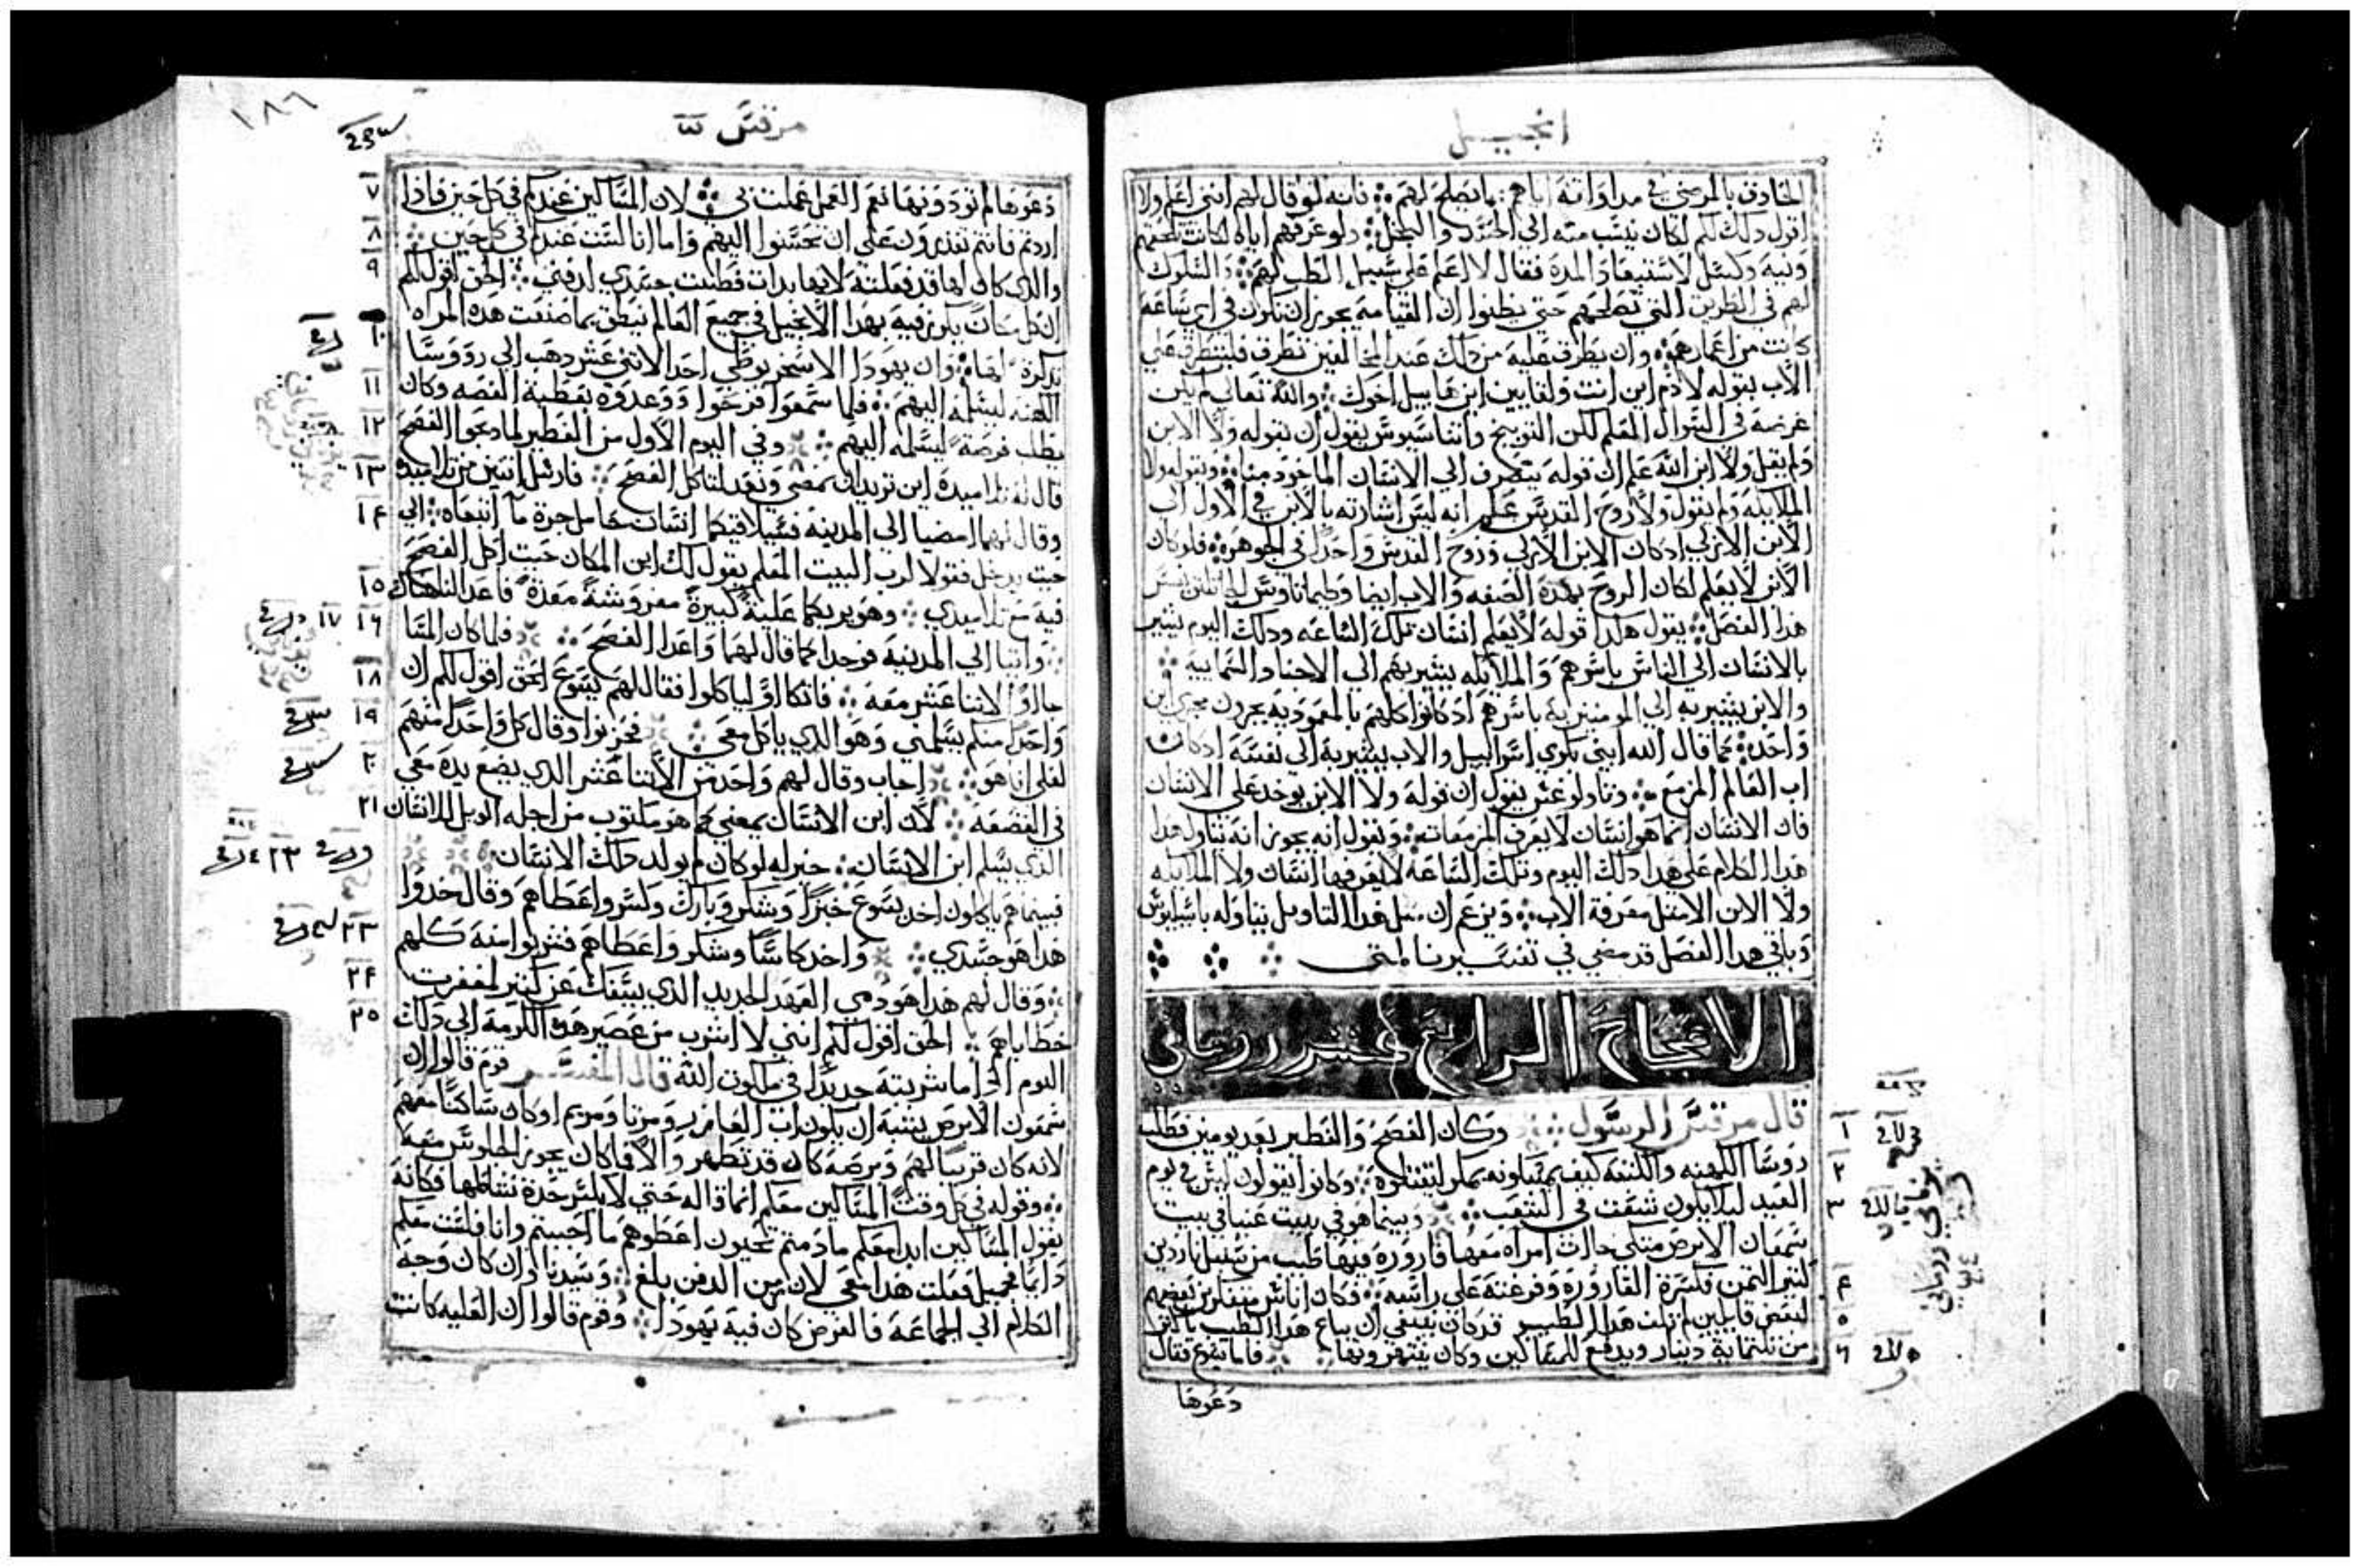 انجيل
الحاذق بالمرضي في مداواته اياهم بما يصلح لهم فانه لو قال لهم انني اعلم ولا
اقول ذلك لكم لكان ينسب منه الي الحسد والبخل ولو عرفهم اياه لكانت تلحقهم
ونيه وكسل لاستبعاد المدة فقال لا اعلم علي سبيل الطب لهم والسلوك
لهم في الطريق التي تصلحهم حتي يظنوا ان القيامه يجوز ان تكون في اي ساعة
كانت من اعمارهم وان يطرق عليه من ذلك عند المخالفين تطرق فليتطرق علي
الاب بقوله لادم اين انت ولقايين اين هابيل اخوك والله تعالي لم يكن
غرضه في السوال العلم لكن التوبيخ واثناسيوس يقول ان بقوله ولا الابن
ولم يقل ولا ابن الله علم ان قوله يتصرف الي الانسان الماخوذ منا وبقوله ولا
الملايكه ولم يقول ولا روح القدس علم انه ليس اشارته بالابن في الاول الي
الابن الازلي اذ كان الابن الازلي وروح القدس واحدا في الجوهر فلو كان
الابن لا يعلم لكان الروح بهذه الصفه والاب ايضا
هذا الفصل يقول هكذا قوله لا يعلم انسان تلك الساعه وذلك اليوم يشير
بالانسان الي الناس باسرهم والملائكه يشير بهم الي الاجناد السماييه
والابن يشير به الي المومنين به باسرهم اذ كانوا كلهم بالمعموديه يجرون مجري ابن
واحد كما قال الله ابني بكري اسراييل والاب يشير به الي نفسه اذ كان
اب العالم المزمع وثاولوغس يقول ان قوله ولا الابن يوخذ علي الانسان
فان الانسان انما هو انسان لا يعرف المزمعات ونقول انه يجوز انه يتناول هذا
هذا الكلام علي هذا ذلك اليوم وتلك الساعة لا يعرفها انسان ولا الملايكه
ولا الابن الا مثل معرفة الاب ويزعم ان مثل هذا التاويل يتاوله باسيليوس
وباقي هذا الفصل قد مضي في تفسيرنا لمتي
الاصحاح الرابع عشر روماني
قال مرقس الرسول وكان الفصح والفطير بعد يومين فطلب
١
روسا الكهنه والكتبه كيف يمسكونه بمكر ليقتلوه وكانوا يقولون ليس في يوم
٢
العيد ليلا يكون شغب في الشعب وبينما هو في بيت عنيا في بيت
٣
سمعان الابرص متكي جات امراه معها قارورة فيها طيب من سنبل ناردين
كثير الثمن فكسرة القارورة وفرغته علي راسه فكان اناس متفكرين بعضهم
٤
لبعض قايلين لم تلف هذا الطيب قد كان ينبغي ان يباع هذا الطيب باكثر
٥
من ثلثماية دينار ويدفع للمساكين وكان ينتهرونها فاما يسوع فقال
٦
دعوها
مرقس
١٨٦
دعوها لم توذونها نعم العمل عملت بي لان المساكين عندكم في كل حين فاذا
٧
اردتم فانتم تقدرون علي ان تحسنوا اليهم واما انا لست عندكم في كل حين
٨
والذي كان لها قد فعلته لانها بدات فطيبت جسدي لدفني الحق اقول لكم
٩
ان كل مكان يكرز فيه بهذا الانجيل في جميع العالم ينطق بما صنعت هذه المراه
تذكرة لها وان يهودا الاسخريوطي احد الاثني عشر ذهب الي رووسا
١٠
الكهنه ليسلمه اليهم فلما سمعوا فرحوا ووعدوه بعطية الفضه وكان
١١
يطلب فرصة ليسلمه اليهم وفي اليوم الاول من الفطير لما ذبحوا الفصح
١٢
قال له تلاميذه اين تريد ان نمضي ونعد لتاكل الفصح فارسل اثنين من تلاميذه
١٣
وقال لهما امضيا الي المدينه فسيلاقيكما انسان حامل جرة ما اتبعاه الي
١٤
حيث يدخل فقولا لرب البيت المعلم يقول لك اين المكان حيث اكل الفصح
فيه مع تلاميذي وهو يريكما علية كبيرة مفروشة معدة فاعدا لنا هناك
١٥
واتيا الي المدينه فوجدا كما قال لهما واعدا الفصح فلما كان المسا
١٦ ١٧
جا هو والاثنا عشر معه فاتكاوا لياكلوا فقال لهم يسوع الحق اقول لكم ان
١٨
واحدا منكم يسلمني وهو الذي ياكل معي فحزنوا وقال كل واحدا منهم
١٩
لعلي انا هو اجاب وقال لهم واحد من الاثنا عشر الذي يضع يده معي
٢٠
في القصعه لان ابن الانسان يمضي كما هو مكتوب من اجله الويل لذلك الانسان
٢١
الذي يسلم ابن الانسان خير له لو كان لم يولد ذلك الانسان
فبينما هم ياكلون اخذ يسوع خبزا وشكر وبارك وكسر واعطاهم وقال خذوا
هذا هو جسدي واخذ كاسا وشكر واعطاهم فشربوا منه كلهم
٢٣
وقال لهم هذا هو دمي العهد الجديد الذي يسفك عن كثير لمغفرت
٢٤
خطاياهم الحق اقول لكم انني لا اشرب من عصير هذه الكرمة الي ذلك
٢٥
اليوم الذي اما شربته جديدا في ملكوت الله قال المفسر قوم قالوا ان
سمعون الابرص يشبه ان يكون اب العازر ومرتا ومريم او كان ساكنا معهم
لانه كان قريبا لهم وبرصه كان قد تطهر والا فما كان يجوز الجلوس معه
وقوله في كل وقت المساكين معكم انما قاله حتي لا يكسر حدة نشاطها فكانه
يقول المساكين ابدا معكم ما دمتم تحيون اعطوهم ما احببتم وانا فلست معكم
دايما فجميل فعلت هذا معي لان زمن الدفن بلغ وسيدنا وان كان وجه
الكلام الي الجماعة فالغرض كان فيه يهودا وقوم قالوا ان العليه كانت